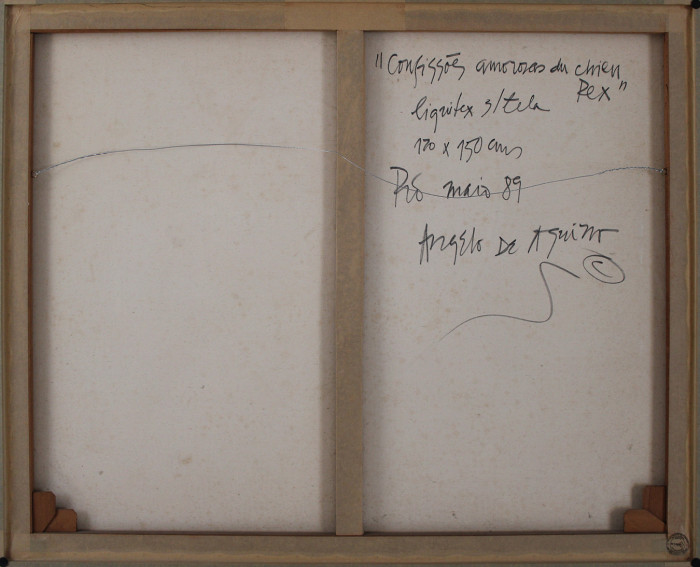 "Confissões amorosas du chien
Rex"
liquitex s/tela
120 x 150 cms
Rio maio 89
Angelo De Aquino
©